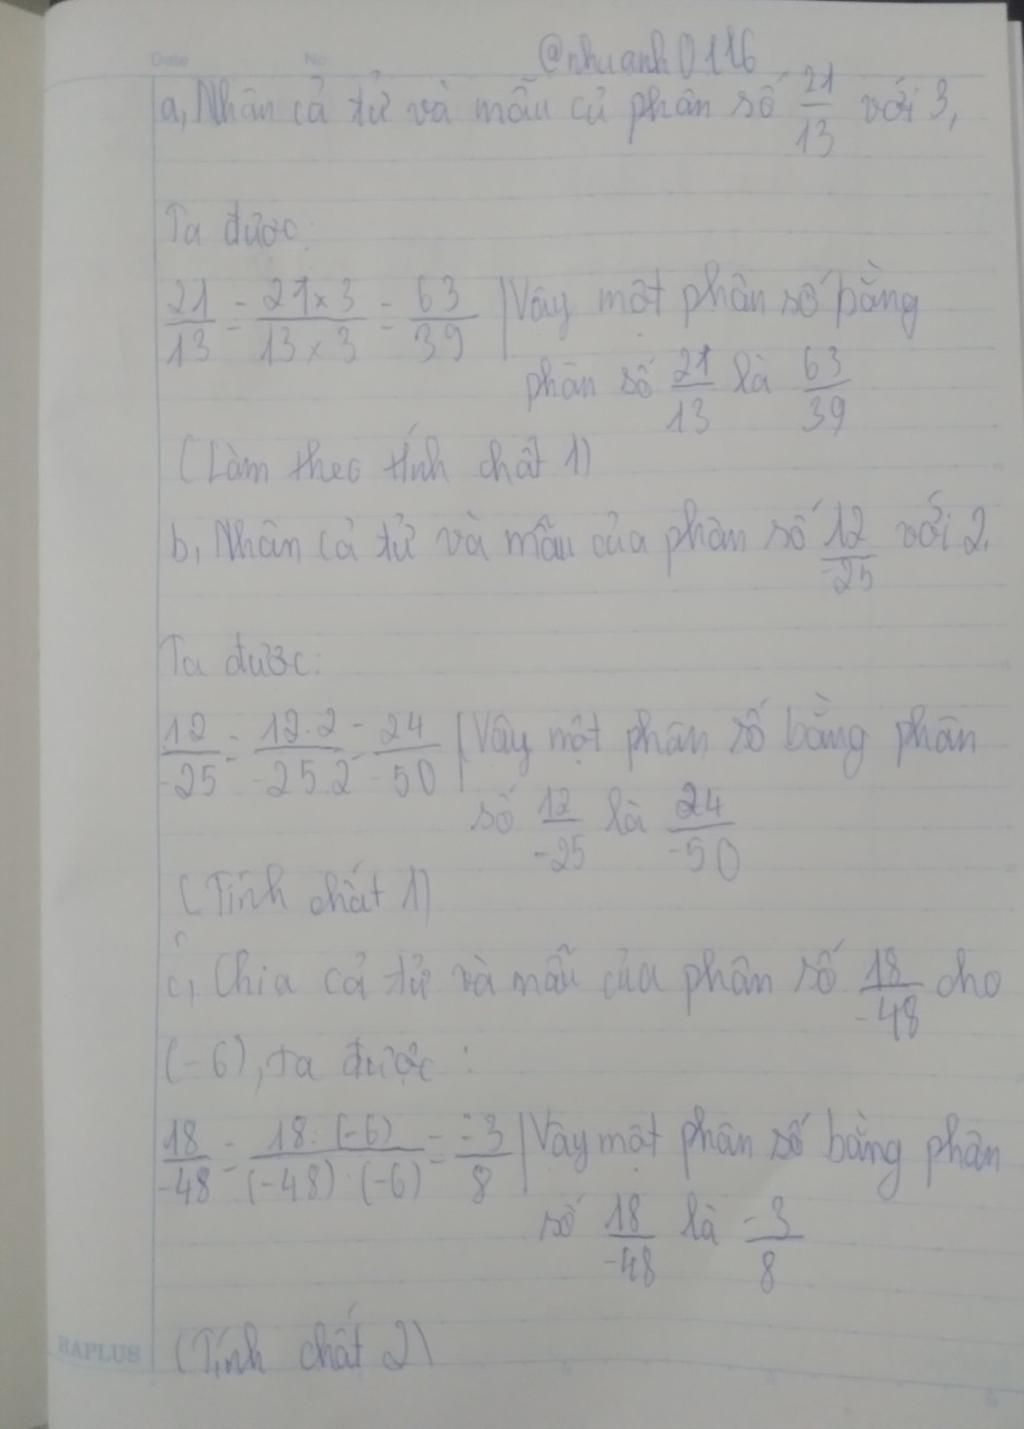 Date No @nhuanh0116
a, Nhân cả tử và mẫu củ phân số 21/13 với 3,
Ta được:
21/13 = 21×3/13×3 = 63/39 | Vây một phân số bằng
phân số 21/13 là 63/39
(Làm theo tính chất 1)
b, Nhân cả tử và mẫu của phân số 12/-25 với 2.
Ta được:
12/-25 = 12.2/-25.2 = 24/-50 | Vây một phân số bằng phân
số 12/-25 là 24/-50
(Tính chất 1)
c, Chia cả tử và mẫu của phân số 18/-48 cho
(-6), ta được :
18/-48 = 18:(-6)/(-48):(-6) = -3/8 | Vây một phân số bằng phân
số 18/-48 là -3/8
HAPLUS (Tính chất 2)